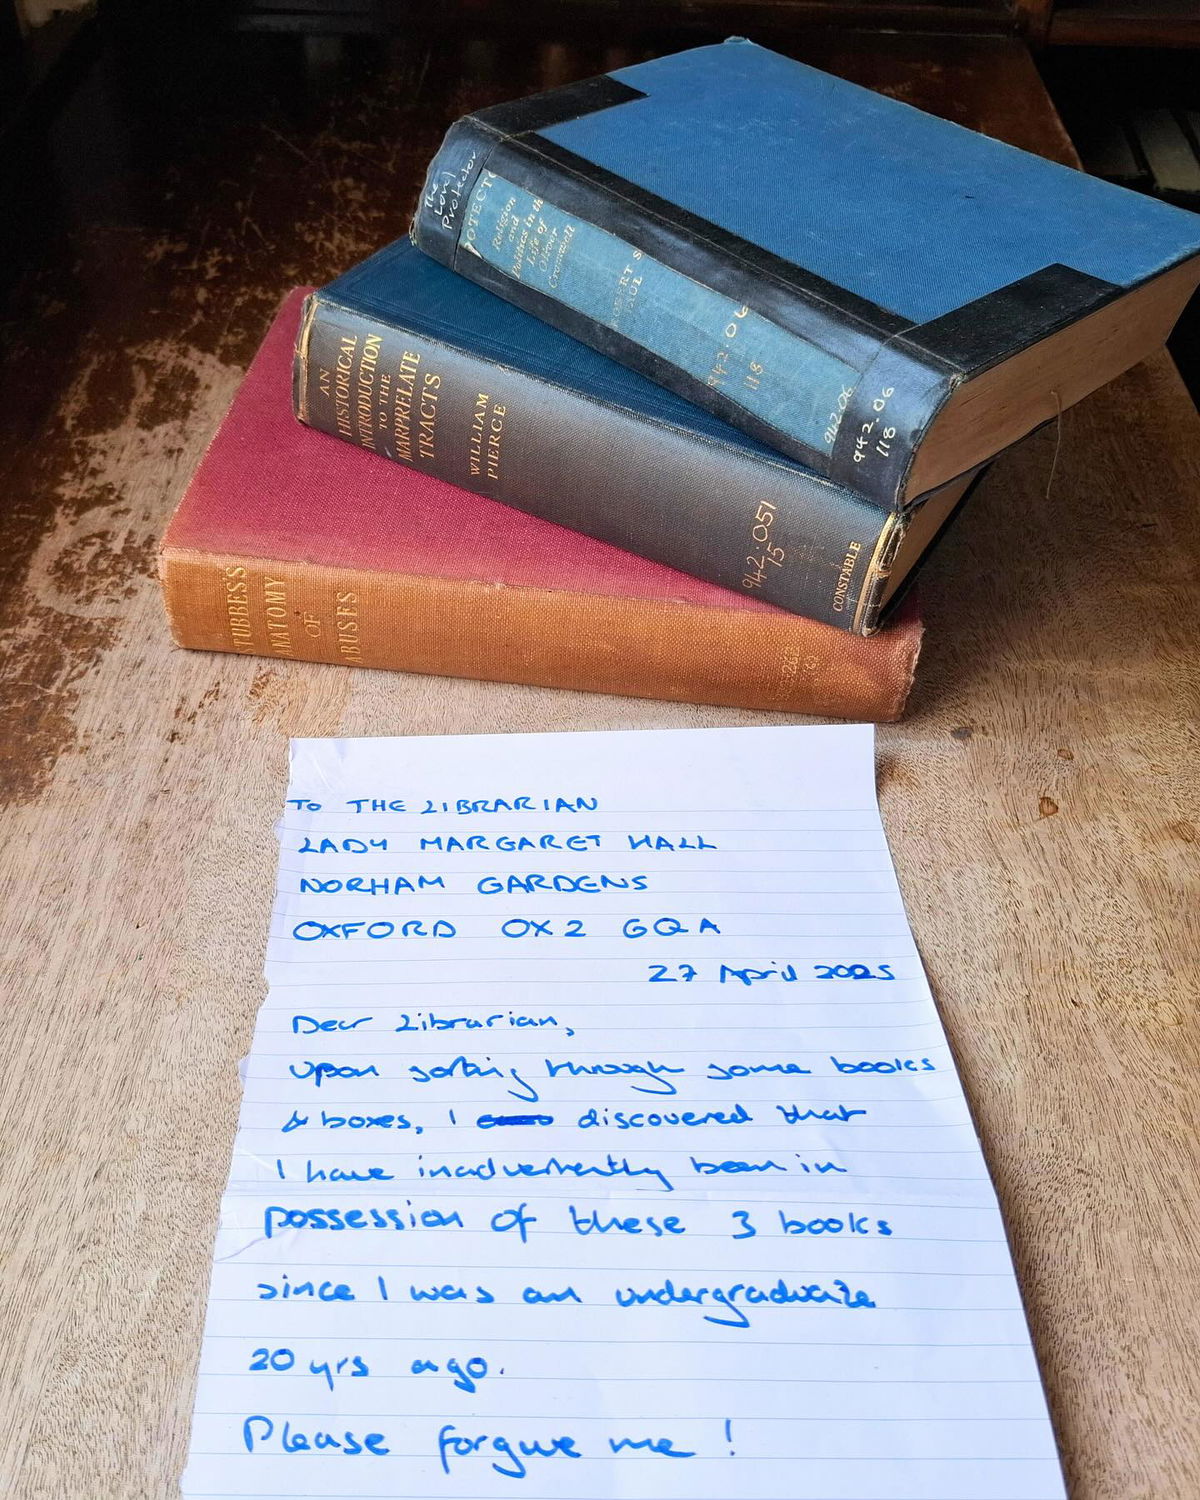 The
Lord
Protector
OTECTO
Religion
and
Politics in th
Life of
Oliver
Cromwell
OBERT S
AUL
942.06
118
942.06
942.06
118
AN
HISTORICAL
INTRODUCTION
TO THE
MARPRELATE
TRACTS
WILLIAM
PIERCE
942.051
75
CONSTABLE
STUBBES'S
ANATOMY
OF
ABUSES
TO THE LIBRARIAN
LADY MARGARET HALL
NORHAM GARDENS
OXFORD OX2 6QA
27 April 2025
Dear Librarian,
Upon sorting through some books
& boxes, I discovered that
I have inadvertently been in
possession of these 3 books
since I was an undergraduate
20 yrs ago.
Please forgive me !